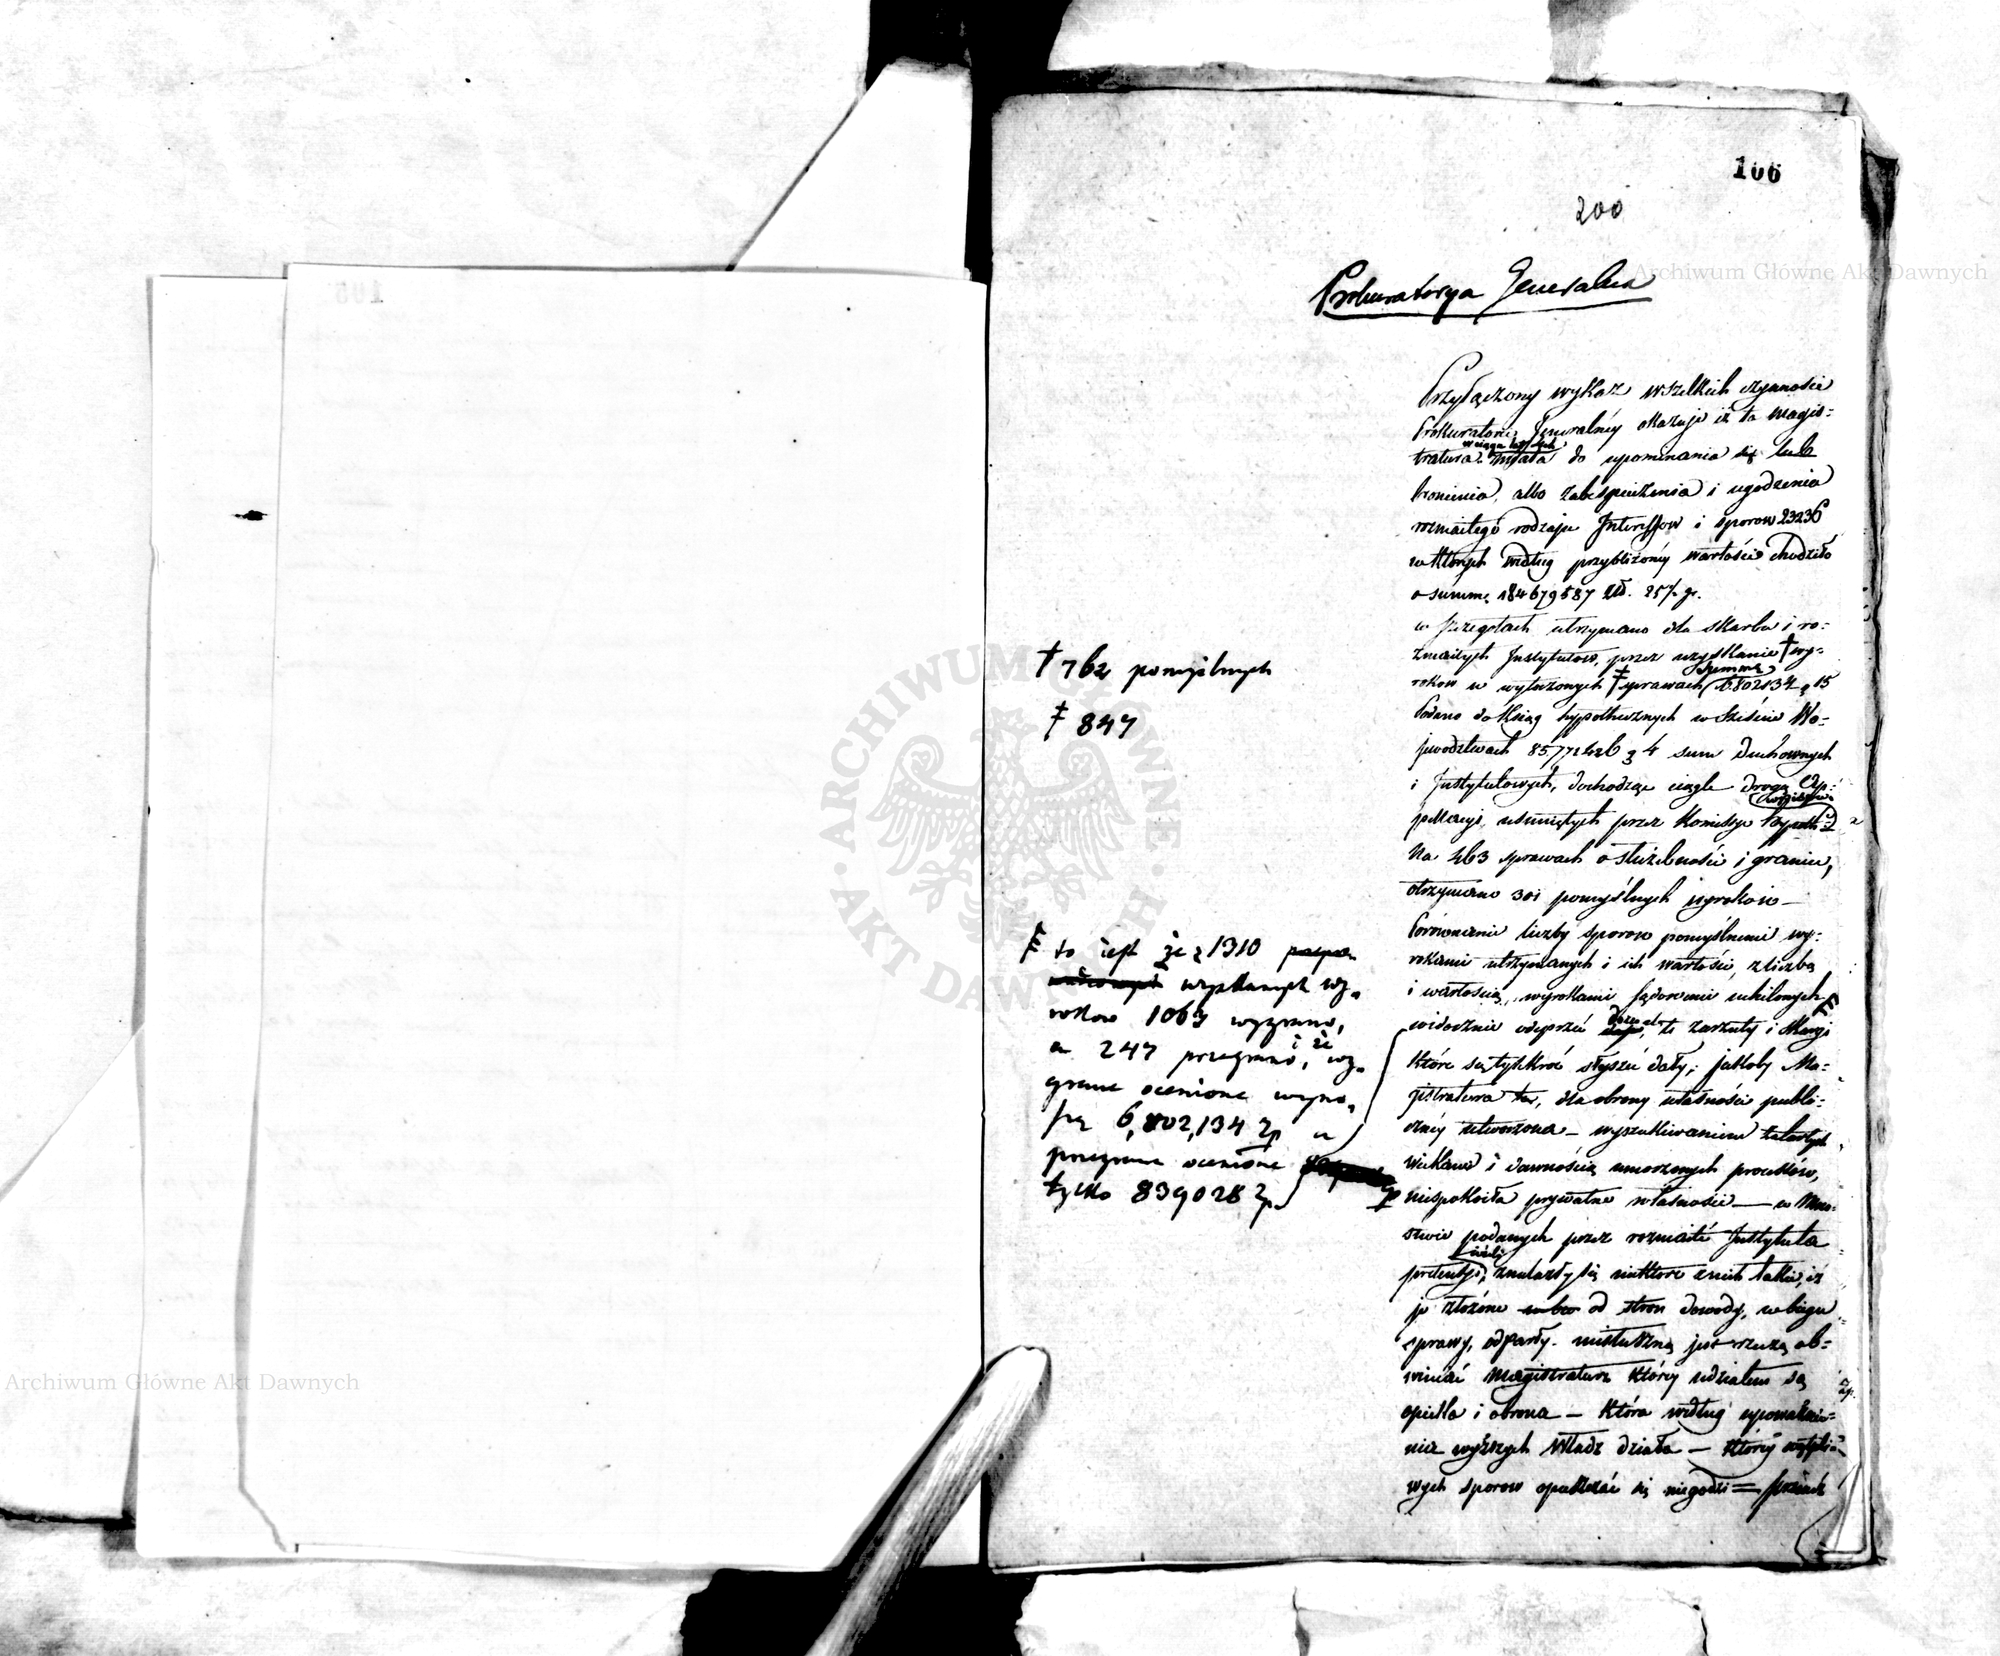 106
200
Prokuratorya Generalna
Przyłączony wykaz wszelkich czynności
Prokuratorii Jeneralnéy okazuje iż ta magis=
w ciągu lat
tratura miała do upominania się lub
bronienia, albo zabespieczenia i ugodzenia
rozmaitego rodzaju Interessow i sporow 23236
w których według przybliżonéy wartości chodziło
o summę 184679587 Zł. 25½ gr.
w szczegołach utrzymano dla skarbu i ro=
zmaitych Instytutow, przez uzyskanie † wy=
summę
rokow w wytoczonych ‡ sprawach 6.802134 g 15
Podano do Ksiąg hypothecznych w sześciu Wo=
jewodztwach 85.772426 g 4 sum duchownych
i Instytutowych, dochodząc ciągle drogą Ap=
pellacyi, usuniętych przez Komissye hypoth:
Na 463 sprawach o służebności i granice,
otrzymano 301 pomyślnych wyrokow —
Porównanie liczby sporow pomyślnemi wy=
rokami utrzymanych i ich wartości, z liczbą
i wartością, wyrokami sądowemi uchilonych
widocznie odeprzeć te zarzuty i skargi
które się tylekroć słyszeć dały, jakoby Ma=
gistratura ta, dla obrony własności publi=
cznéy utworzona — wyszukiwaniem zatartych
wiekami i dawnością umorzonych procesów,
niespokoiła prywatne własności — w Mno=
stwie podanych przez rozmaite Instytuta
jeżeli
pretensyi, znalazły się niektóre z nich takie, iż
je złożone od stron dowody, w biegu
sprawy, odparły. niesłuszną jest rzeczą ob=
winiać Magistraturę któréy udziałem są
opieka i obrona — która według upoważnie=
nia wyższych Władz działa — któréy wątpli=
wych sporow opuszczać się niegodzi =
† 762 pomyślnych
‡ 847
to iest że z 1310
uzyskanych wy=
rokow 1063 wygrano,
i że
a 247 przegrano, wy=
grane ocenione wyno=
szą 6,802,134 Zp a
przegrane ocenione
tylko 839028 Zp.
Archiwum Główne Akt Dawnych
Archiwum Główne Akt Dawnych
ARCHIWUM GŁÓWNE AKT DAWNYCH